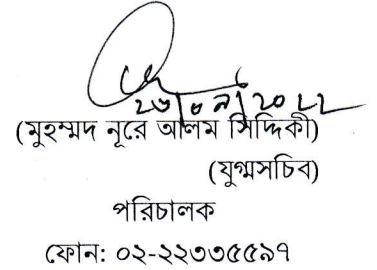 ২৬/০৯/২০২২
(মুহম্মদ নূরে আলম সিদ্দিকী)
(যুগ্মসচিব)
পরিচালক
ফোন: ০২-২২৩৩৫৫৯৭